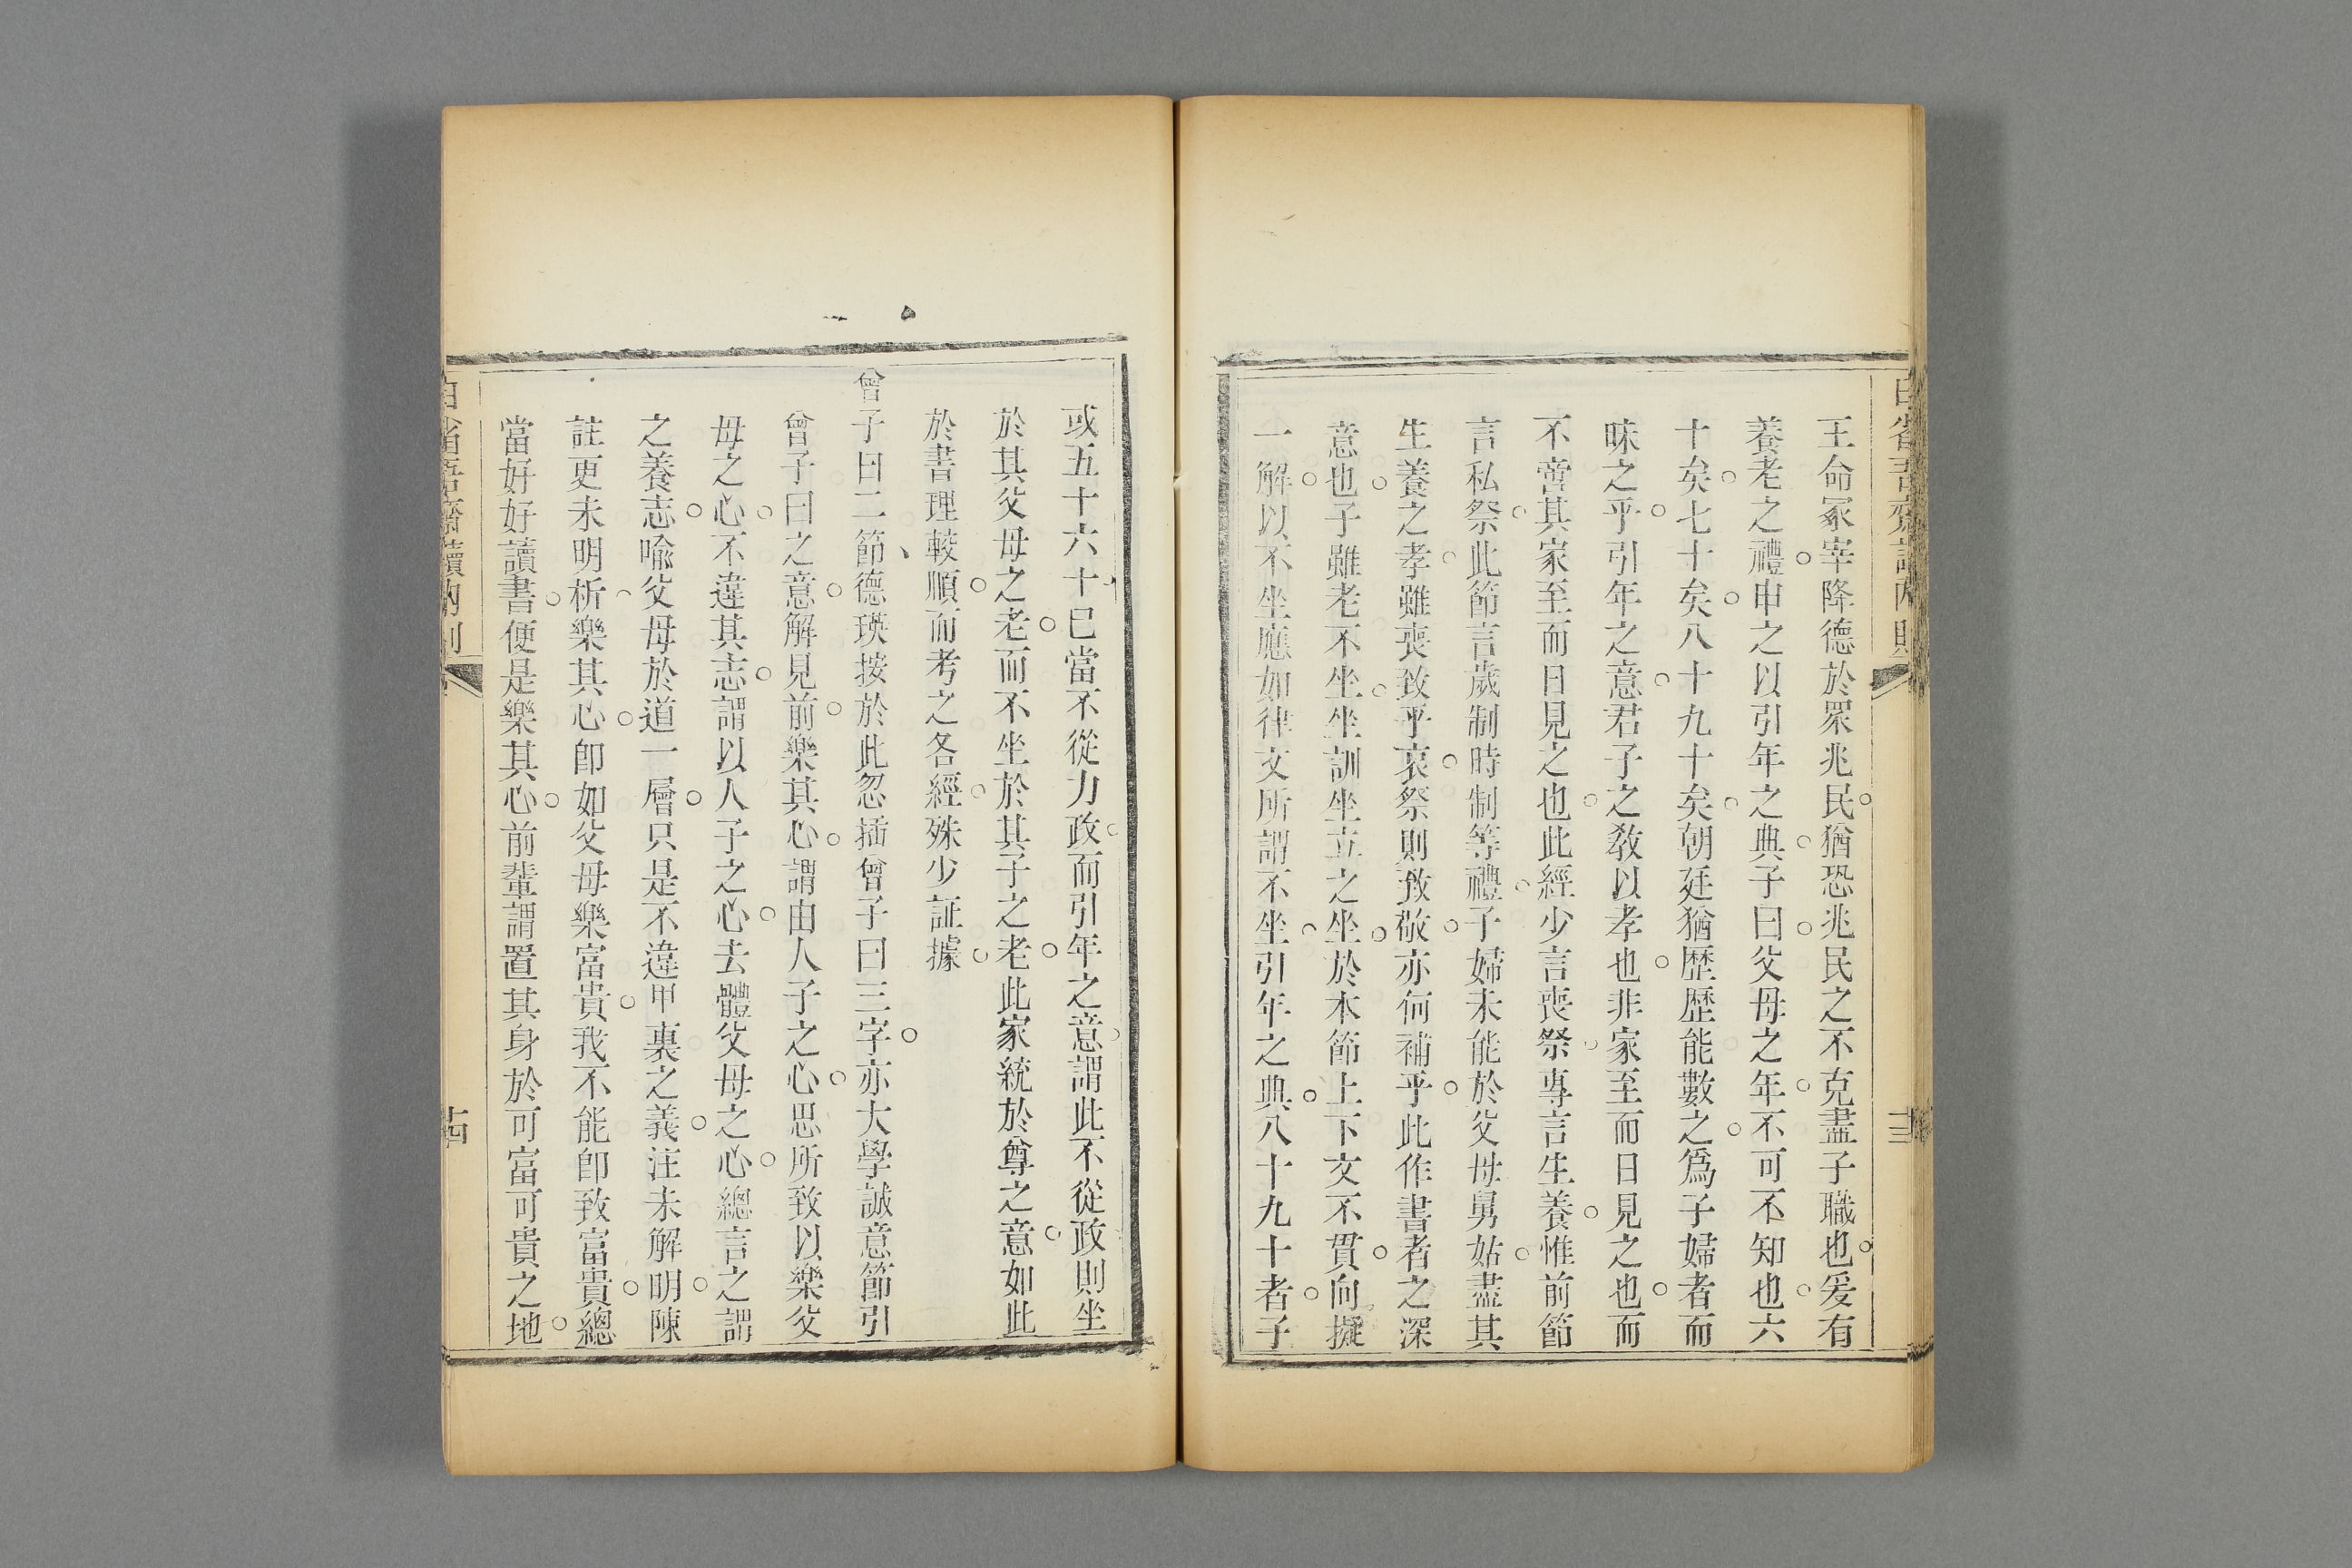 王命冢宰降德於眾兆民猶恐兆民之不克盡子職也爰有
養老之禮申之以引年之典子曰父母之年不可不知也六
十矣七十矣八十九十矣朝廷猶歷歷能數之爲子婦者而
昧之乎引年之意君子之敎以孝也非家至而日見之也而
不啻其家至而日見之也此經少言喪祭專言生養惟前節
言私祭此節言歲制時制等禮子婦未能於父母舅姑盡其
生養之孝雖喪致乎哀祭則致敬亦何補乎此作書者之深
意也子雖老不坐坐訓坐立之坐於本節上下文不貫向擬
一解以不坐應如律文所謂不坐引年之典八十九十者子
或五十六十已當不從力政而引年之意謂此不從政則坐
於其父母之老而不坐於其子之老此家統於尊之意如此
於書理較順而考之各經殊少証據
曾子曰二節德瑛按於此忽插曾子曰三字亦大學誠意節引
曾子曰之意解見前樂其心謂由人子之心思所致以樂父
母之心不違其志謂以人子之心去體父母之心總言之謂
之養志喩父母於道一層只是不違甲裏之義注未解明陳
註更未明析樂其心卽如父母樂富貴我不能卽致富貴總
當好好讀書便是樂其心前輩謂置其身於可富可貴之地
十四